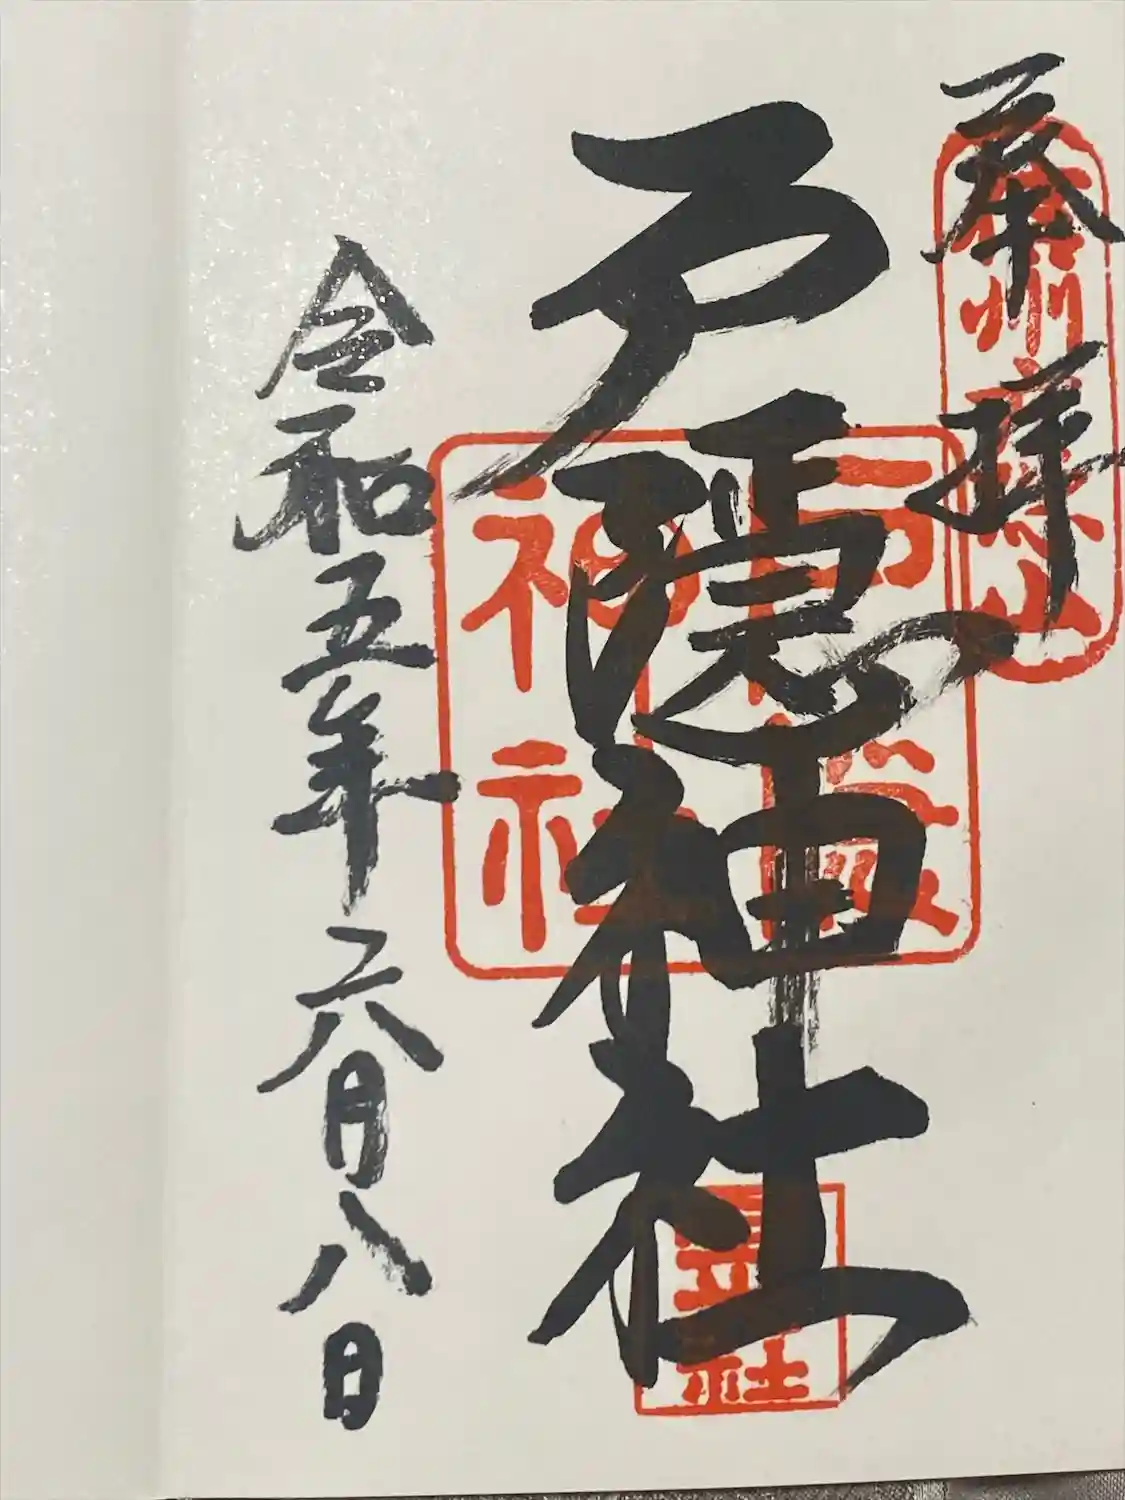 奉拝
信州戸隠山
戸隠神社
戸隠神社
令和五年六月八日